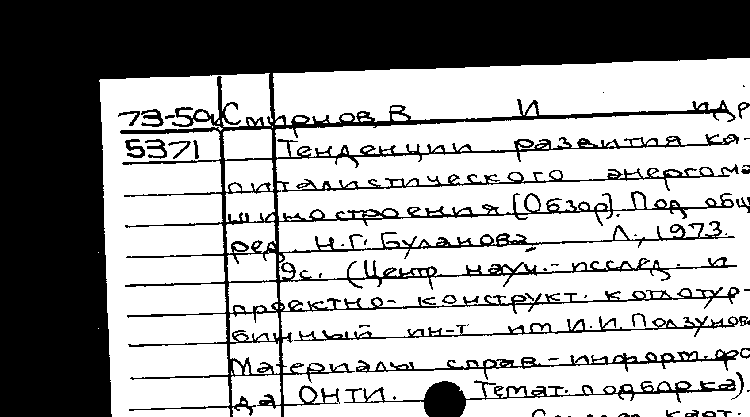 73-50 Смирнов, В И и др
5371 Тенденции развития ка-
питалистического энергома
шиностроения [Обзор]. Под общ
ред Н.Г. Буланова Л., 1973.
9с. (Центр науч.-исслед. и
проектно-конструкт. котлотур-
бинный ин-т им И.И. Ползунова
Материалы справ-информ. фо
да ОНТИ. Темат. подборка).